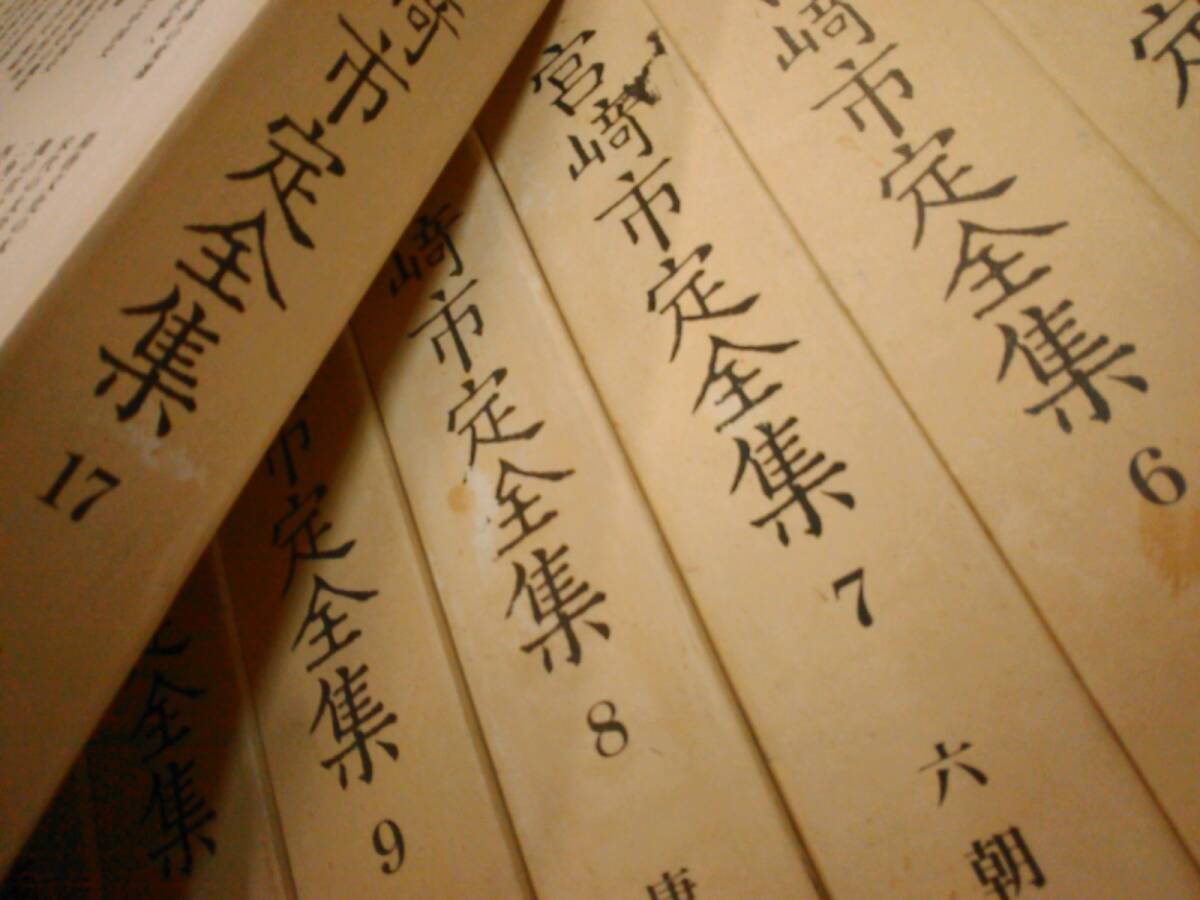 市定全集 17
全集
市定全集 9
崎市定全集 8 唐
宮崎市定全集 7 六朝
崎市定全集 6
定